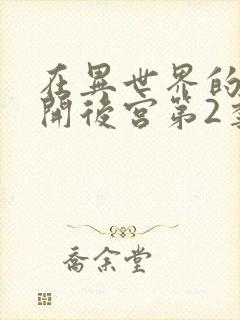 在異世界的
開後宮第2季
喬余堂